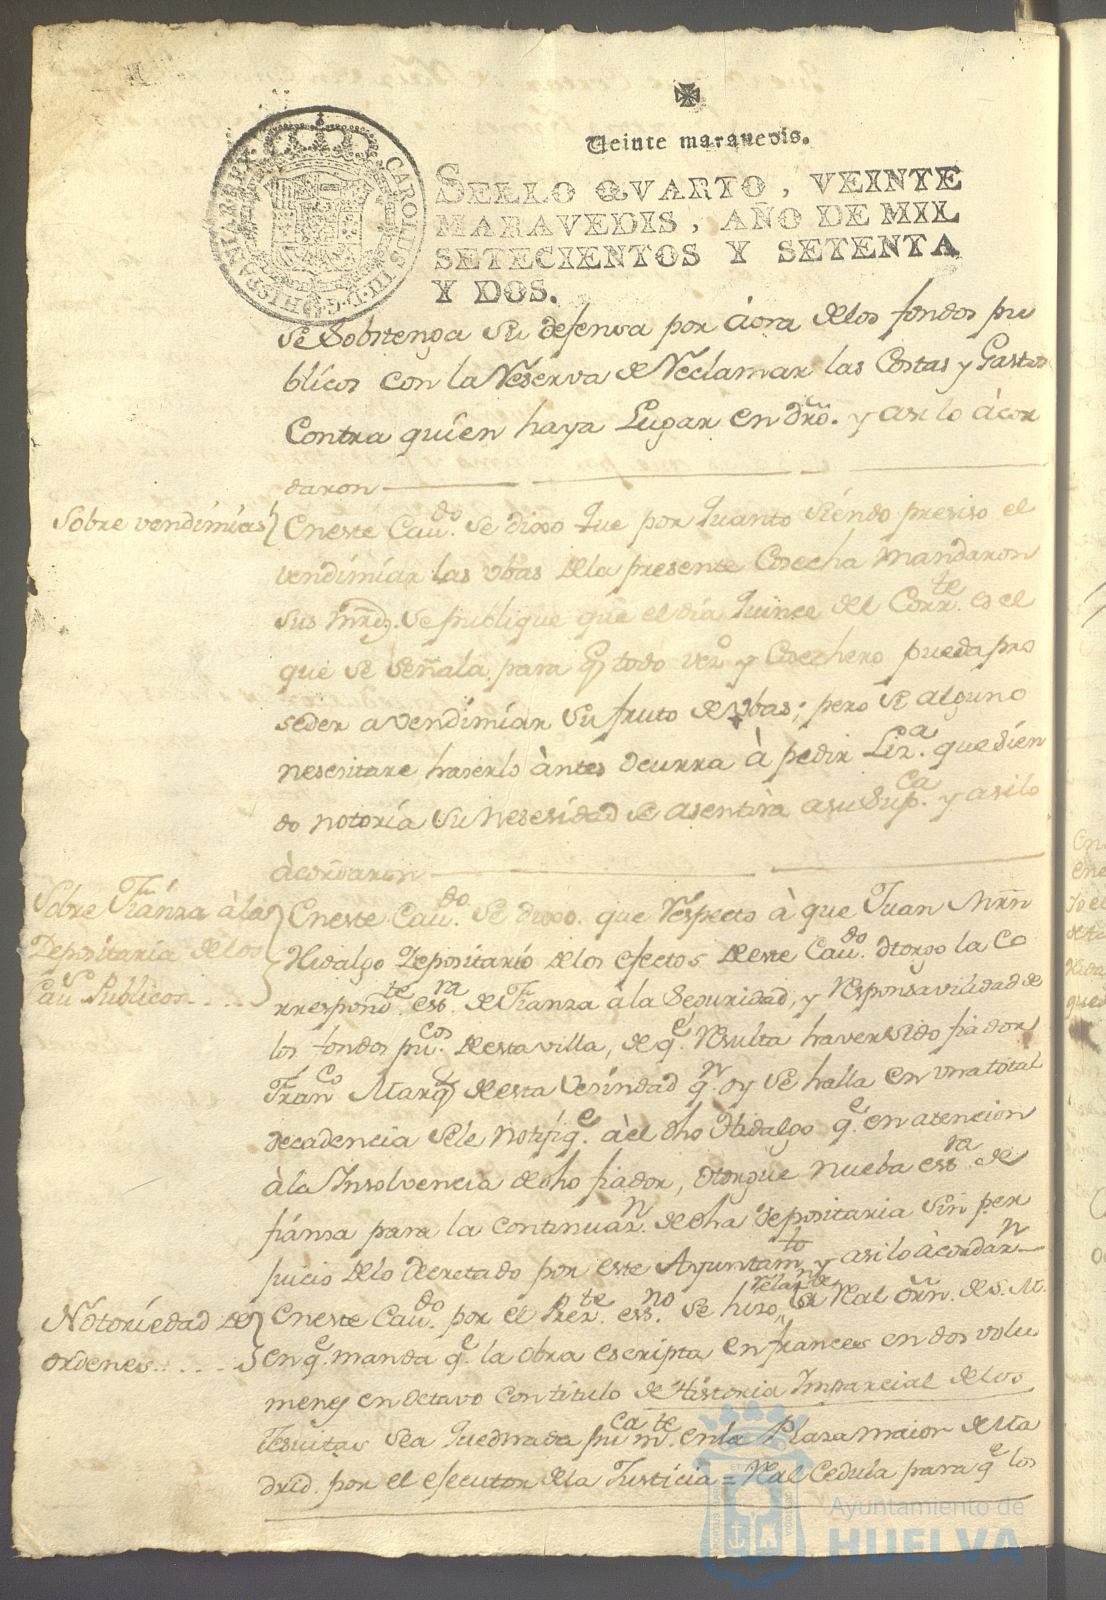 Veinte maravedis.
SELLO QVARTO, VEINTE
MARAVEDIS, AÑO DE MIL
SETECIENTOS Y SETENTA
Y DOS.
CAROLUS III D G HISPANIAR REX
se Sobstenga su defensa por aora de los fondos pu
blicos con la Reserva de Reclamar las Costas y Gastos
Contra quien haya Lugar en dro. y asi lo acor
daron
Sobre vendimias
En este Cavdo. se dixo que por quanto siendo presiso el
vendimiar las ubas de la presente Cosecha mandaron
sus mrds. se publique que el dia quince del Corrte. es el
que se señala para q todo vezo. y Cosechero pueda pro
seder a vendimiar su fruto de ubas; pero si alguno
nesesitare haserlo àntes ocurra à pedir Liza. que sien
do notoria su nesesidad se asentirà a su Supca. y asilo
àcordaron
Sobre Fianza à la
Depositaria de los
Caus Publicos
En este Cavdo. se dixo que Respecto à que Juan Mrn
Hidalgo Depositario de los efectos de este Cavdo. otorgo la Co
rrespondte. essra. de Fianza à la Seguridad, y Responsavilidad de
los fondos pucos. de esta villa, de qe. Resulta haver sido fiador
Franco Marqz de esta Vesindad qn. oy se halla en una total
decadencia se le notifiqe. à el dho Hidalgo qe. en atencion
à la Insolvencia de dho fiador, otorgue nueba essra. de
fianza para la continuazn. de dha depositaria sin per
juicio de lo decretado por este Ayuntamto. y asilo àcordarn
Notoriedad de
ordenes
En este Cavdo. por el Prete. essno. se hizo relazn de la Real orñ. de S. M.
en qe. manda qe. la obra escripta en frances en dos volu
menes en octavo con titulo de Historia Imparcial de los
Jesuitas sea quemada pucamte. en la Plaza maior de Ma
drid. por el esecutor de la Justicia = Real Cedula para qe los
Ayuntamiento de
HUELVA